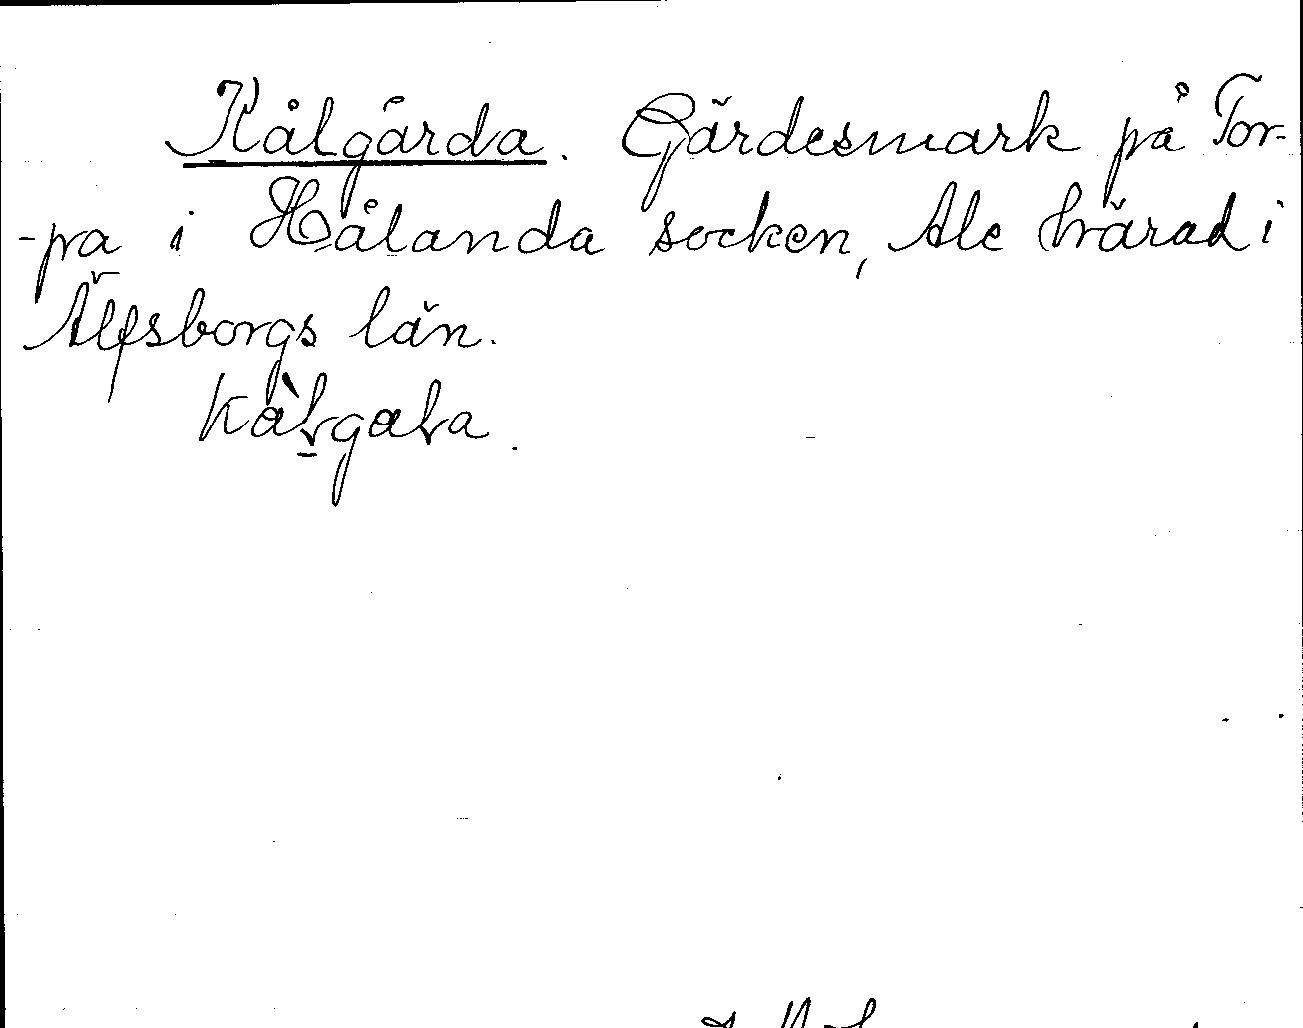 Kålgärda. Gärdesmark på Tor-
-pa i Hålanda socken, Ale härad i
Älfsborgs län.